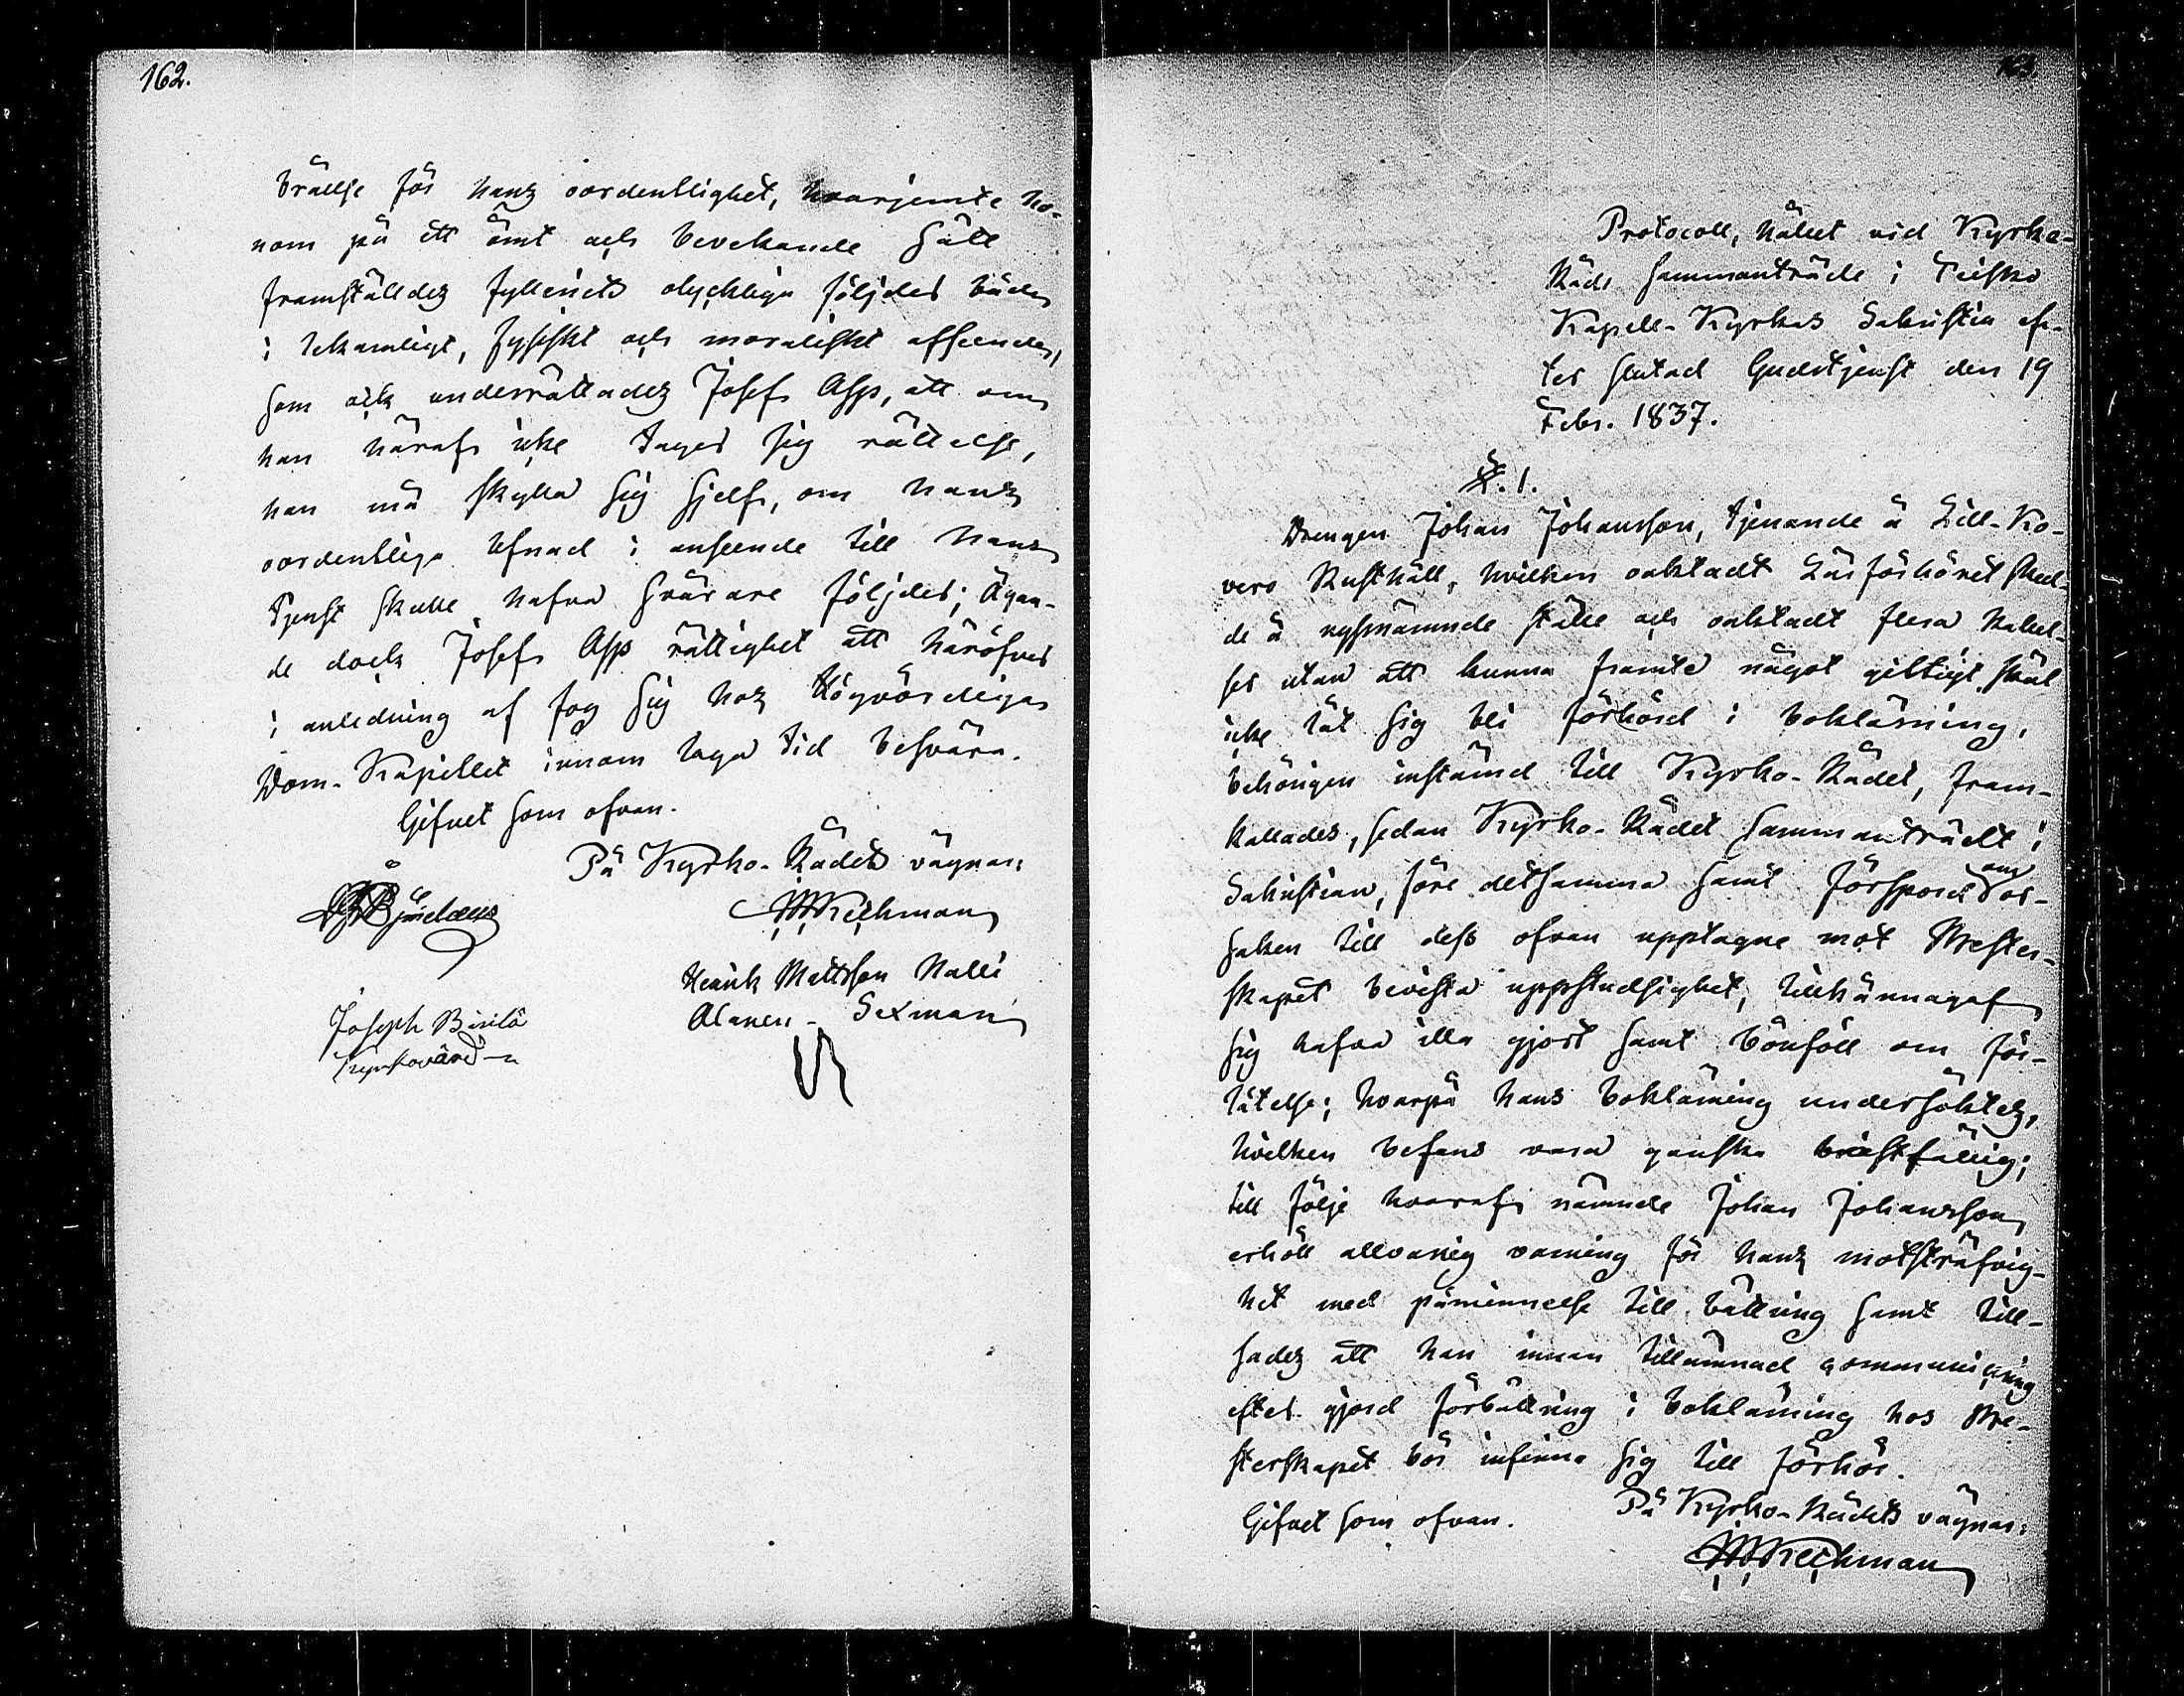 162.
brällse för hans oordentlighet, hvarjemte ho-
nom på ett ömt och bevekande sätt
framställdes fylleriets olyckliga följder både
i lekamligt, fysiskt och moraliskt afseende,
som ock underrättades Josef Asp, att om
han häraf icke tager sig rättelse,
han må skylla sig sjelf, om hans
oordentliga lefnad i anseende till hans
tjenst skulle hafva svårare följder; Ägan-
de dock Josef Asp rättighet att häröfver
i anledning af sig hos Högvördiga
Dom-Kapitlet innom laga tid besvära.
Gifvet som ofvan.
På Kyrko-Rådets vägnar:
Henrik Mattsson Halli
Alanen - Sexman
Joseph
Kyrkovärd
163.
Protocoll, hållet vid Kyrko-
Råds sammanträde i Teisko
Kapell-Kyrkas Sakristia ef-
ter slutad Gudstjenst den 19
Febr. 1837.
§. 1.
Drengen Johan Johansson, tjenande å Lill-Ko-
vero Rusthåll, hvilken oaktadt Läsförhöret sked-
de å nyssnämnde ställe och oaktadt flera kallel-
ser utan att kunna framte något giltigt skäl
icke låt sig bli förhörd i bokläsning,
behörigen instämd till Kyrko-Rådet, fram-
kallades, sedan Kyrko-Rådet sammanträdt i
Sakristian, före detsamma samt förspord om or-
saken till dess ofvan upptagne mot Prester-
skapet bevista uppstudsighet, tillkännagaf
sig hafva illa gjort samt bönföll om för-
låtelse; hvarpå hans bokläsning undersöktes,
hvilken befans vara ganska bristfällig;
till följe hvaraf nämnde Johan Johansson
erhöll allvarlig varning för hans motsträfvig-
het med påminnelse till bättring samt till-
sades att han innan tillämnad communicering
efter gjord förbättring i bokläsning hos Pre-
sterskapet bör infinna sig till förhör.
Gifvet som ofvan. På Kyrko-Rådets vägnar: